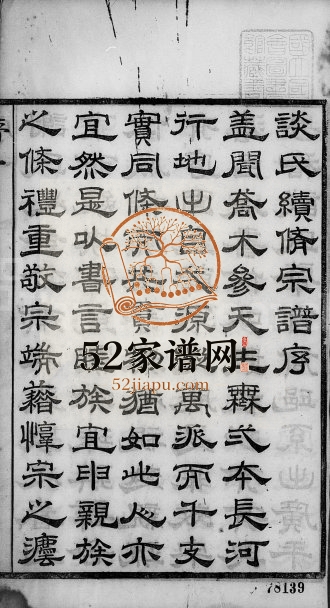 談氏續脩宗譜序
蓋聞喬木參天生無弍本長河
行地出自大源萬派而千支
實同條共貫物猶如此人亦
宜然是以書言睦族宜申親族
之條禮重敬宗端藉惇宗之灋
52家谱网
52jiapu.com
78139